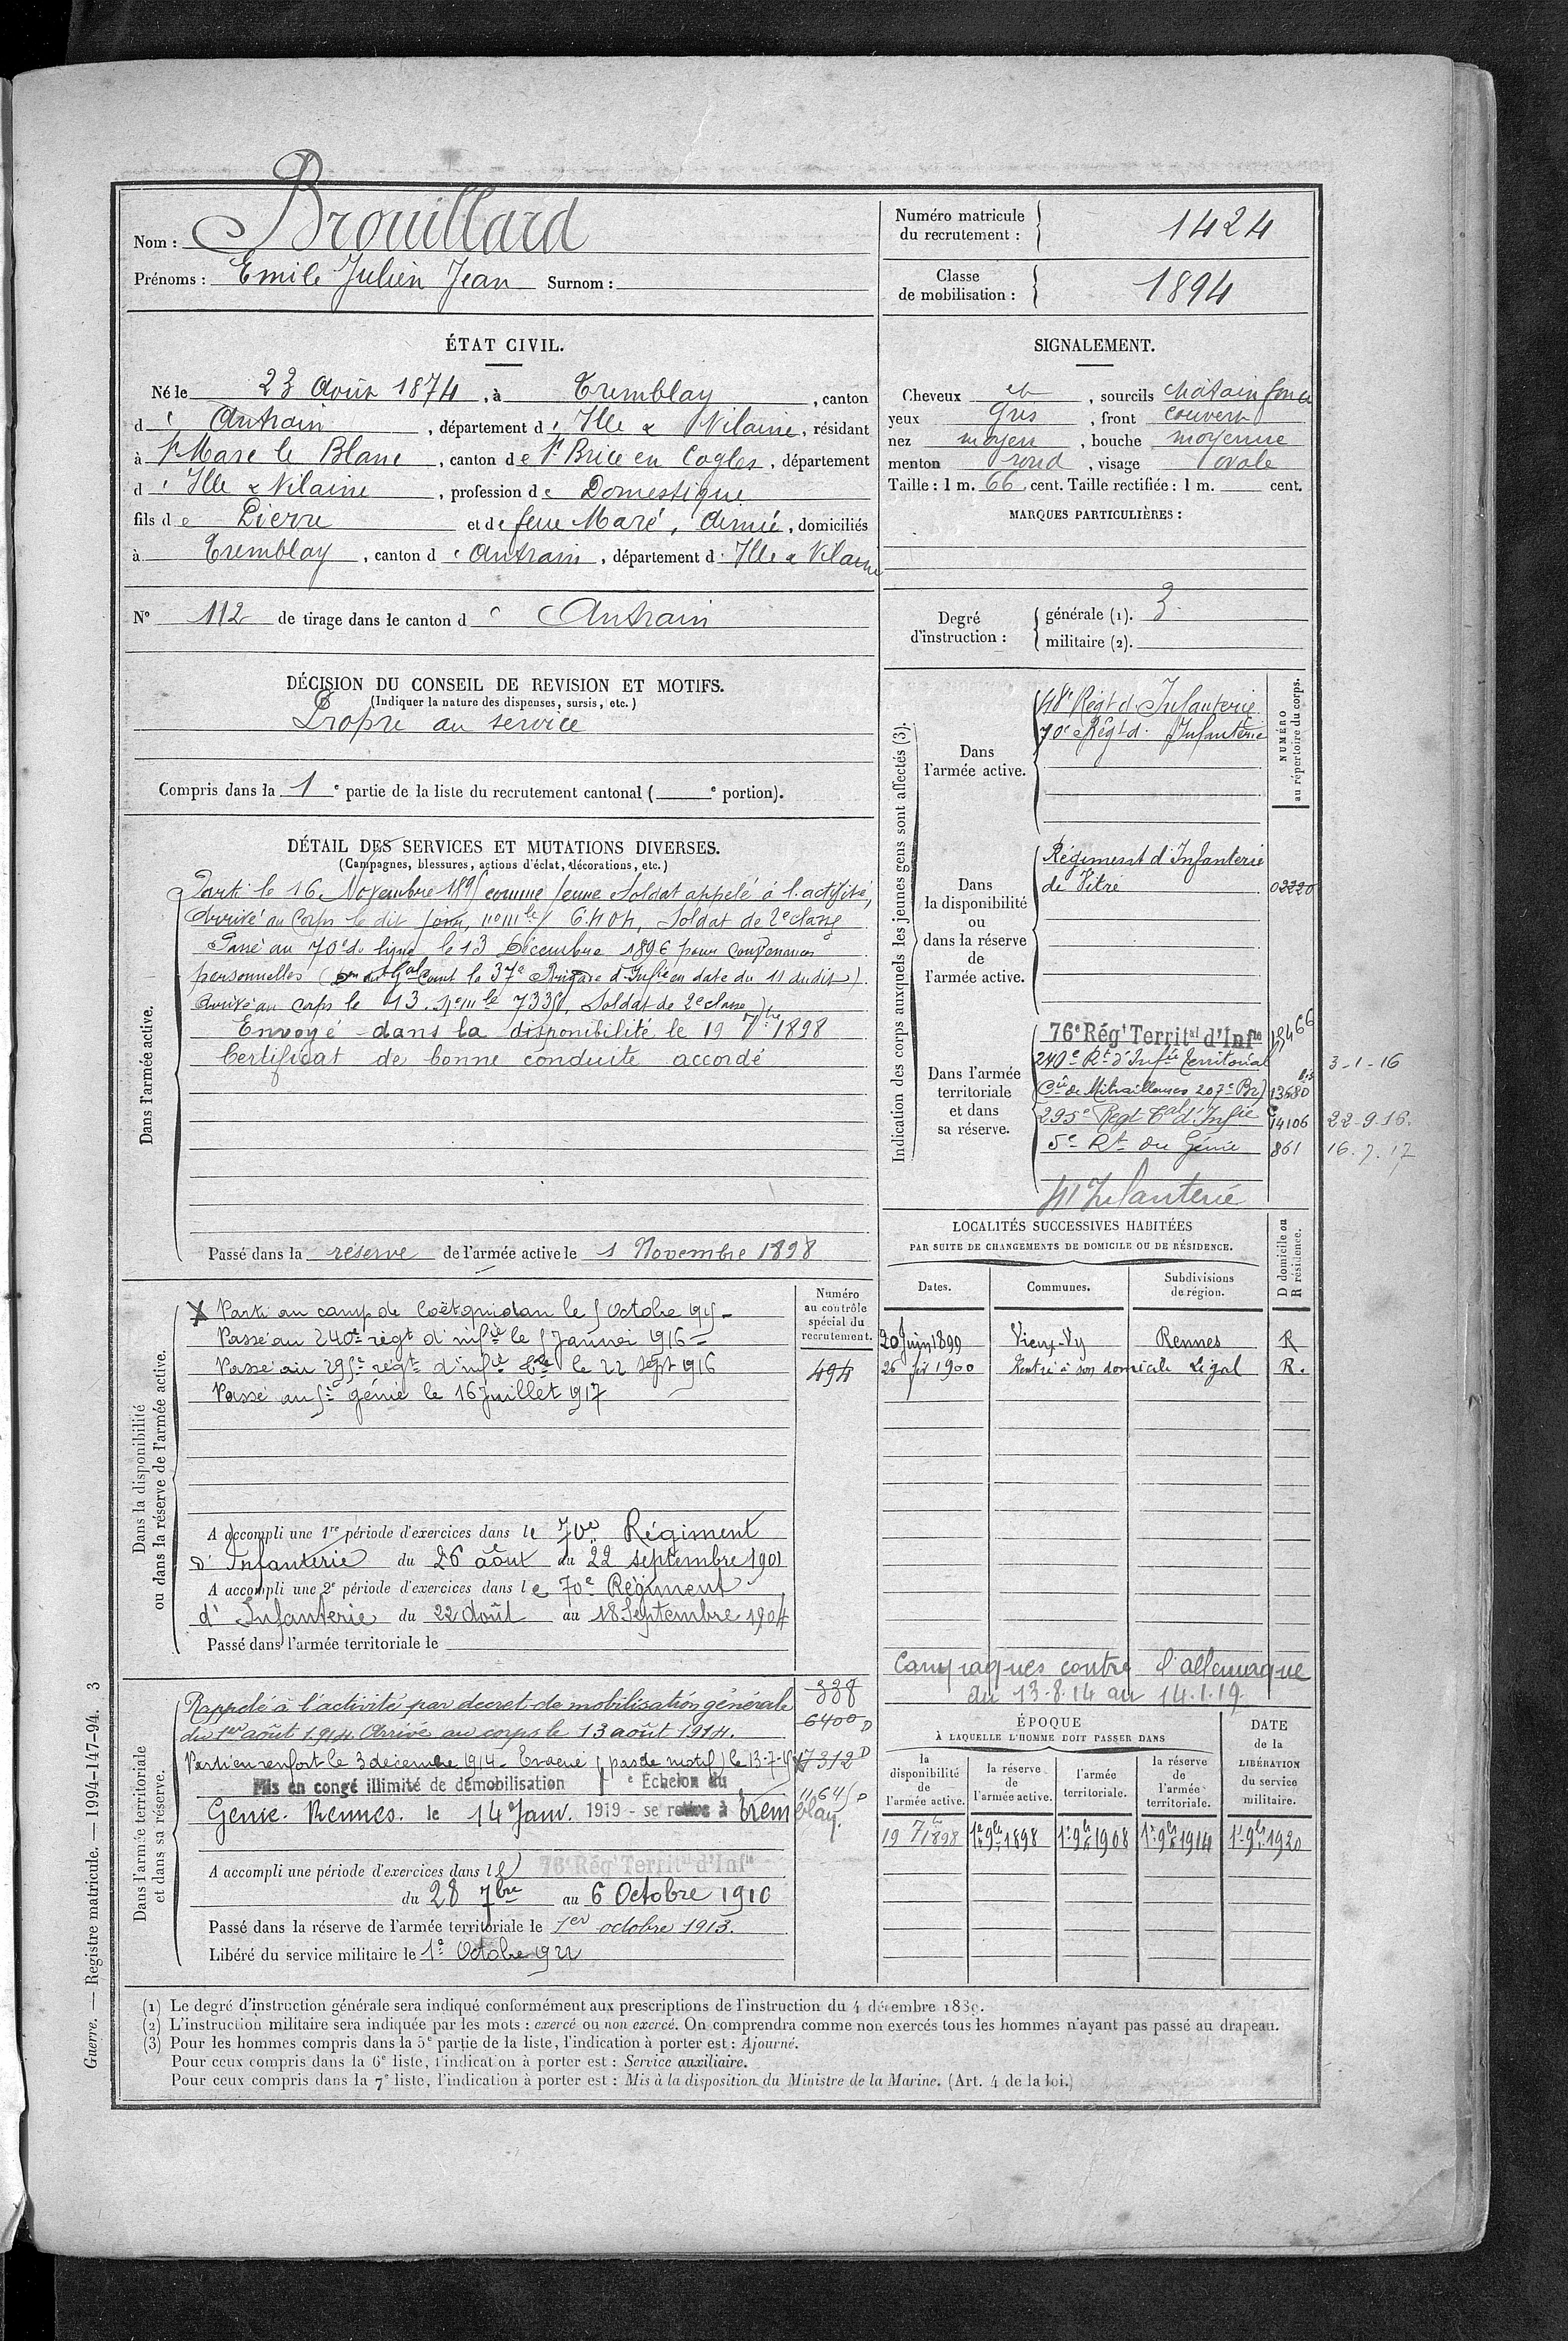 Nom : Brouillard
Prénoms : Emile Julien Jean Surnom :
Numéro matricule du recrutement : 1424
Classe de mobilisation : 1894
ÉTAT CIVIL.
Né le 23 Août 1874, à Tremblay, canton
d'Antrain, département d'Ille & Vilaine, résidant
à St Marc le Blanc, canton de St Brice en Cogles, département
d'Ille & Vilaine, profession de Domestique
fils de Pierre et de feue Maré, Aimée, domiciliés
à Tremblay, canton d'Antrain, département d'Ille & Vilaine
N° 112 de tirage dans le canton d'Antrain
DÉCISION DU CONSEIL DE REVISION ET MOTIFS.
(Indiquer la nature des dispenses, sursis, etc.)
Propre au service
Compris dans la 1e partie de la liste du recrutement cantonal ( e portion).
SIGNALEMENT.
Cheveux et, sourcils châtain foncé
yeux gris, front couvert
nez moyen, bouche moyenne
menton rond, visage ovale
Taille : 1 m. 66 cent. Taille rectifiée : 1 m. cent.
MARQUES PARTICULIÈRES :
Degré d'instruction :
générale (1). 3
militaire (2).
DÉTAIL DES SERVICES ET MUTATIONS DIVERSES.
(Campagnes, blessures, actions d'éclat, décorations, etc.)
Dans l'armée active.
Parti le 16 Novembre 1895 comme jeune soldat appelé à l'activité,
Arrivé au Corps le dit jour, nom le 6404, Soldat de 2e classe
Passé au 70e de ligne le 13 Décembre 1896 pour convenances
personnelles ( Gal Comt la 37e Brigade d'Infie en date du 11 dudit)
Arrivé au corps le 13. no mle 7335, Soldat de 2e classe
Envoyé dans la disponibilité le 19 7bre 1898
Certificat de bonne conduite accordé
Passé dans la réserve de l'armée active le 1 Novembre 1898
Indication des corps auxquels les jeunes gens sont affectés (3).
NUMÉRO au répertoire du corps.
Dans l'armée active.
48e Régt d'Infanterie
70e Régt d'Infanterie
Dans la disponibilité ou dans la réserve de l'armée active.
Régiment d'Infanterie
de Vitré 02220
Dans l'armée territoriale et dans sa réserve.
76e Régt Territal d'Infie
240e Rt d'Infie territorial 3-1-16
(Cie de Mitrailleuses 207e Be) 13680
295e Regt Tal d'Infie 14106 22-9-16.
5e Rt du Génie 861 16.7.17
41 Infanterie
LOCALITÉS SUCCESSIVES HABITÉES
PAR SUITE DE CHANGEMENTS DE DOMICILE OU DE RÉSIDENCE.
Dates. Communes. Subdivisions de région. D domicile ou R résidence.
20 Juin 1899 Vieux-Vy Rennes R
26 fév 1900 Rentré à son domicile légal R.
Dans la disponibilité ou dans la réserve de l'armée active.
Numéro au contrôle spécial du recrutement.
494
X Parti au camp de Coëtquidan le 5 octobre 1915 -
Passé au 240e régt d'infie le 5 Janvier 1916 -
Passé au 295e régt d'infie tle le 22 sept 1916
Passé au 5e génie le 16 juillet 1917
A accompli une 1re période d'exercices dans le 70e Régiment
d'Infanterie du 26 août au 22 septembre 1901
A accompli une 2e période d'exercices dans le 70e Régiment
d'Infanterie du 22 Août au 18 Septembre 1904
Passé dans l'armée territoriale le
Dans l'armée territoriale et dans sa réserve.
Rappelé à l'activité par decret de mobilisation générale
du 1er août 1914. Arrivé au corps le 13 août 1914.
Parti en renfort le 3 décembre 1914 - Evacué (pas de motif) le 13-7-15
Mis en congé illimité de démobilisation e Echelon du
Genie. Rennes. le 14 Janv. 1919 - se retire à Tremblay.
338
6400 D
17312 D
A accompli une période d'exercices dans le 76e Régt Territal d'Infie
du 28 7bre au 6 Octobre 1910
Passé dans la réserve de l'armée territoriale le 1er octobre 1913.
Libéré du service militaire le 1e Octobre 1922
Campagnes contre l'allemagne
du 13-8-14 au 14.1.19
ÉPOQUE
À LAQUELLE L'HOMME DOIT PASSER DANS
la disponibilité de l'armée active. la réserve de l'armée active. l'armée territoriale. la réserve de l'armée territoriale.
DATE de la LIBÉRATION du service militaire.
19 7bre 1898 1er 9bre 1898 1er 9bre 1908 1er 9bre 1914 1er 9bre 1920
(1) Le degré d'instruction générale sera indiqué conformément aux prescriptions de l'instruction du 4 décembre 1889.
(2) L'instruction militaire sera indiquée par les mots : exercé ou non exercé. On comprendra comme non exercés tous les hommes n'ayant pas passé au drapeau.
(3) Pour les hommes compris dans la 5e partie de la liste, l'indication à porter est : Ajourné.
Pour ceux compris dans la 6e liste, l'indication à porter est : Service auxiliaire.
Pour ceux compris dans la 7e liste, l'indication à porter est : Mis à la disposition du Ministre de la Marine. (Art. 4 de la loi.)
Guerre. — Registre matricule. — 1994-147-94. 3